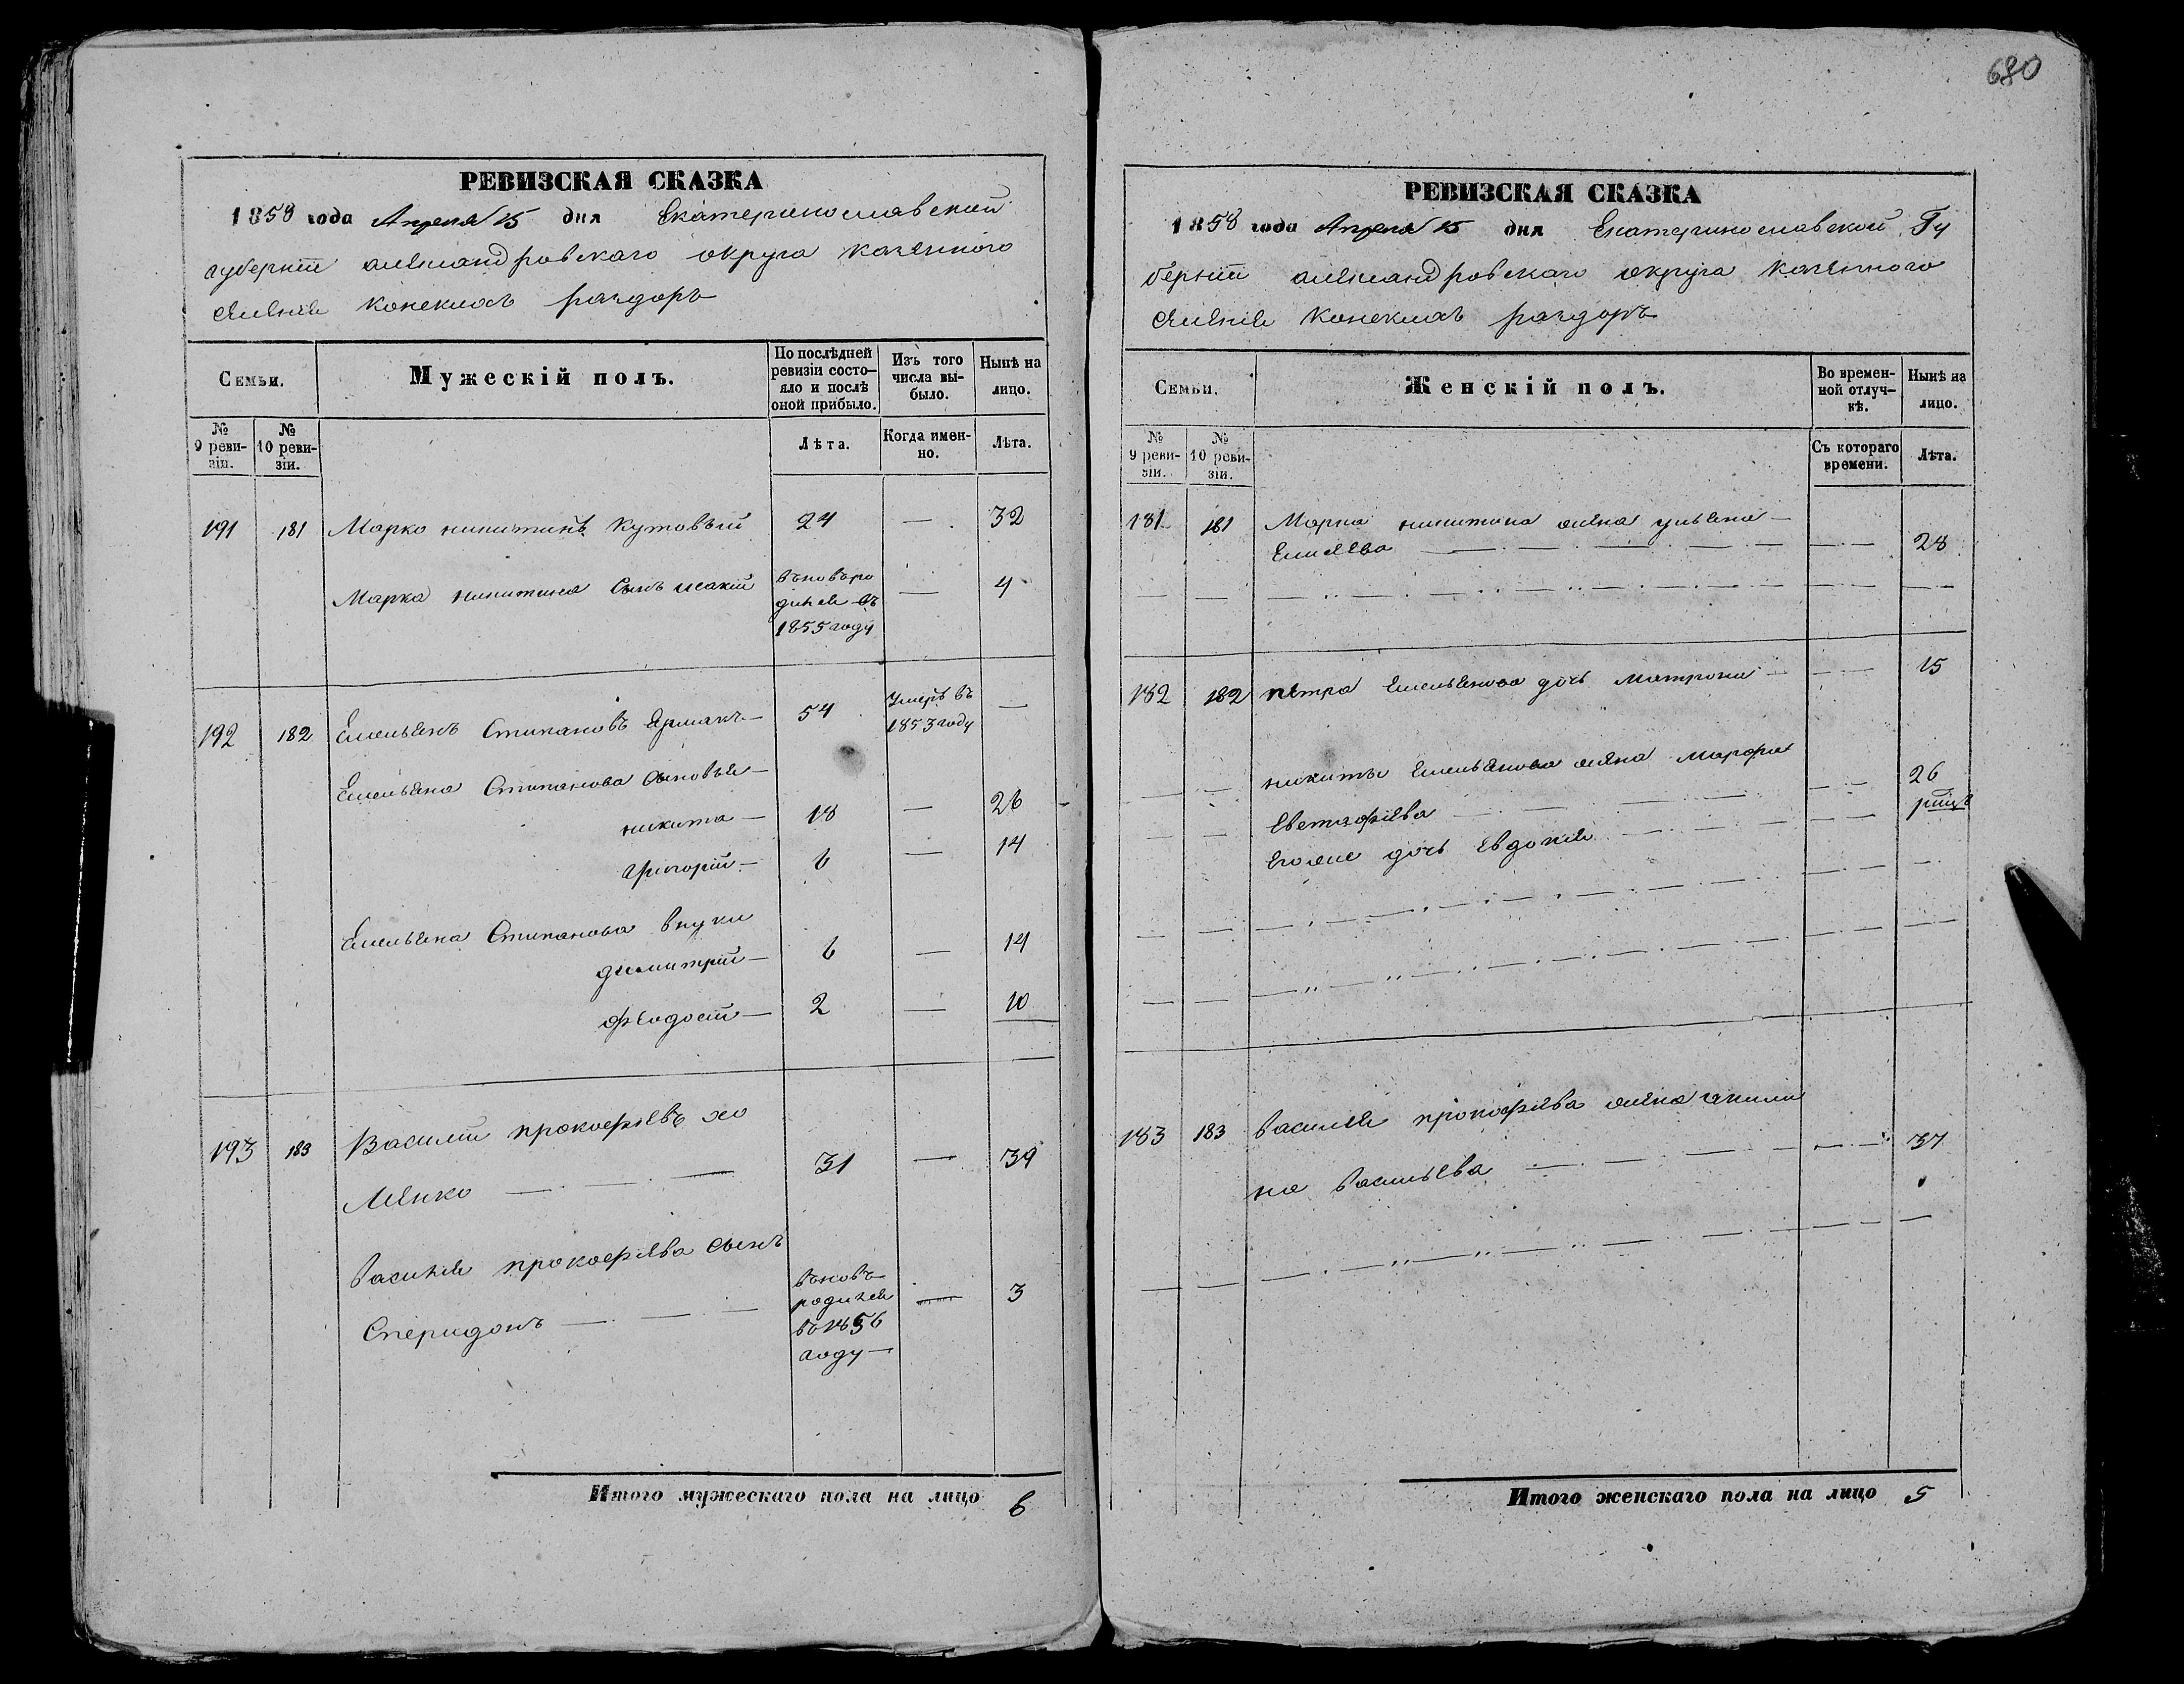 680
РЕВИЗСКАЯ СКАЗКА
1858 года Апреля 15 дня Екатеринославской
губерніи александровскаго округа казенного
селенія конскихъ раздоръ
Семьи.
Мужескій полъ.
По послѣдней
ревизіи состо-
яло и послѣ
оной прибыло.
Изъ того
числа вы-
было.
Нынѣ на
лицо.
№
9 реви-
зіи.
№
10 реви-
зіи.
Лѣта.
Когда имен-
но.
Лѣта.
191 181 Марко никитинъ Кутовый 24 — 32
Марка никитина сынъ исакій
вьновьро
дился въ
1855 году
— 4
192 182 Емельянъ Стипановъ Ярмакъ — 54
Умеръ въ
1853 году
—
Емельяна Стипанова сыновья —
никита — 18 — 26
григорій — 6 — 14
Емельяна Стипанова внуки
димитрій — 6 — 14
феодосій — 2 — 10
193 183 Василій прокофіевъ хо
менко — 31 — 39
василія прокофіева сынъ
Спиридонъ —
вьновь
родился
въ 1856
году —
— 3
Итого мужескаго пола на лицо 6
РЕВИЗСКАЯ СКАЗКА
1858 года Апреля 15 дня Екатеринославской Гу
берніи александровскаго округа казенного
селенія конскихъ раздоръ
Семьи.
Женскій полъ.
Во времен-
ной отлуч-
кѣ.
Нынѣ на
лицо.
№
9 реви-
зіи.
№
10 реви-
зіи.
Съ котораго
времени.
Лѣта.
181 181 Марка никитина жена ульяна —
Елисеева — 28
182 182 петра Емельянова дочь матрона — 15
никиты Емельянова жена марфа
Евстафіева — 26
Егоже дочь Евдокія —
183 183 василія прокофіева жена акили
на васильева — 37
Итого женскаго пола на лицо 5